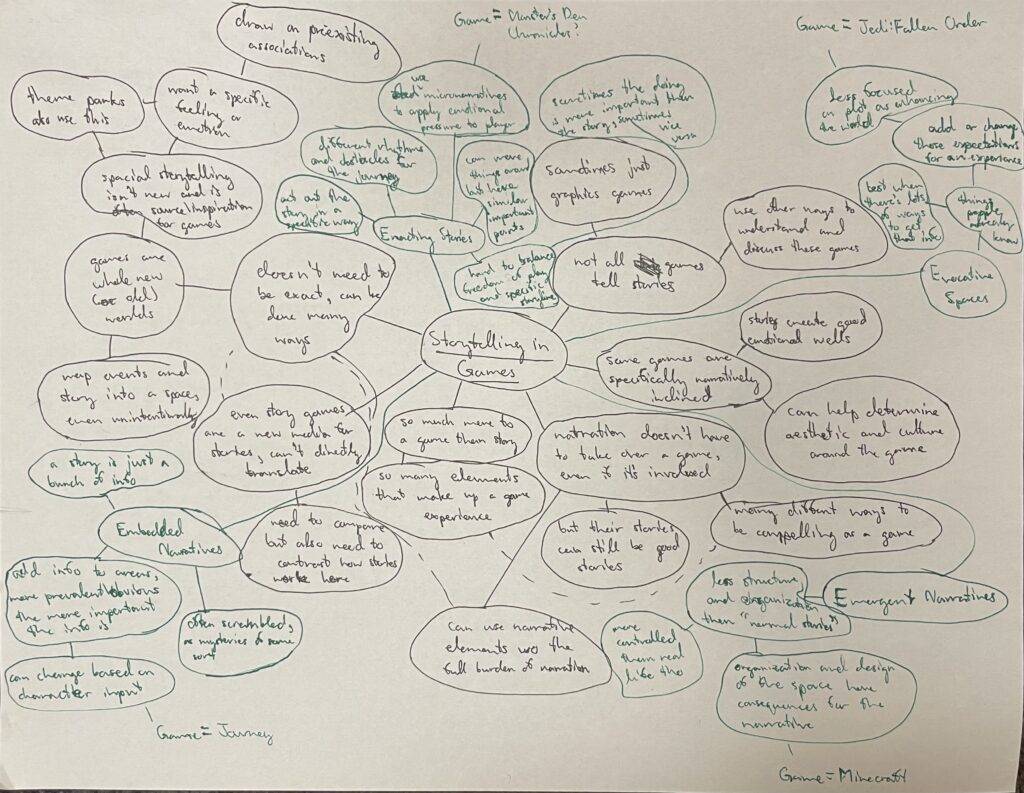 Game = Monster's Den
Chronicles?
Game = Jedi: Fallen Order
draw on preexisting
associations
theme parks
also use this
want a specific
feeling or
emotion
use
micronarratives
to apply emotional
pressure to player
sometimes the doing
is more important than
the story, sometimes
vice
versa
less focused
on plot as enhancing
the world
add or change
those expectations
for an experience
different rhythms
and obstacles for
the journey
can move
things around
but have
similar
important
points
spacial storytelling
isn't new and is
source/inspiration
for games
act out the
story in a
specific way
Enacting Stories
sometimes just
graphics games
best when
there's lots
of ways
to get
that info
things
people
already
know
use other ways to
understand and
discuss these games
games are
whole new
(or old)
worlds
doesn't need to
be exact, can be
done many
ways
hard to balance
freedom of play
and specific
storyline
not all games
tell stories
Evocative
Spaces
Storytelling in
Games
stories create good
emotional wells
some games are
specifically narratively
inclined
map events and
story into a space,
even unintentionally
even story games
are a new media for
stories, can't directly
translate
so much more to
a game than story
narration doesn't have
to take over a game,
even if it's involved
can help determine
aesthetic and culture
around the game
a story is just a
bunch of info
so many elements
that make up a game
experience
Embedded
Narratives
need to compare
but also need to
contrast how stories
work here
but their stories
can still be good
stories
many diffent ways to
be compelling as a game
add info to areas,
more prevalent/obvious
the more important
the info is
often scrambled,
as mysteries of some
sort
less structure
and organization
then "normal stories"
Emergent Narratives
can use narrative
elements w/o the
full burden of narration
more
controlled
then real
life tho
can change based on
character input
organization and design
of the space have
consequences for the
narrative
Game = Journey
Game = Minecraft